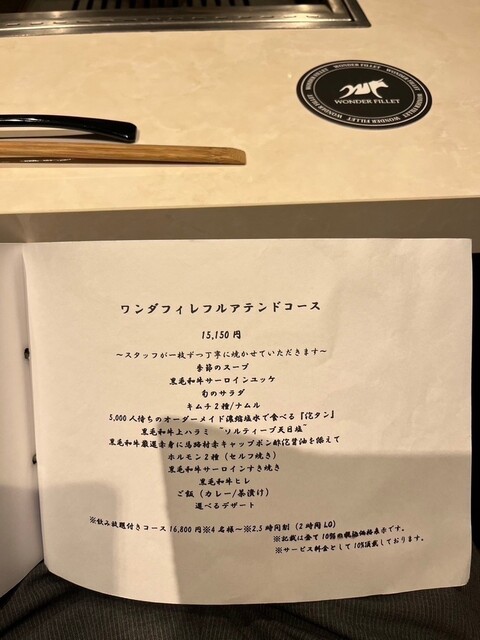 WONDER FILLET
WONDER FILLET
ワンダフィレフルアテンドコース
15,150円
～スタッフが一枚ずつ丁寧に焼かせていただきます～
季節のスープ
黒毛和牛サーロインユッケ
旬のサラダ
キムチ2種/ナムル
5,000人待ちのオーダーメイド濃縮塩水で食べる『佗タン』
黒毛和牛上ハラミ "ソルティーブ天日塩"
黒毛和牛厳選赤身に馬路村赤キャップポン酢佗醤油を添えて
ホルモン2種（セルフ焼き）
黒毛和牛サーロインすき焼き
黒毛和牛ヒレ
ご飯（カレー/茶漬け）
選べるデザート
※飲み放題付きコース16,800円※4名様～※2.5時間制（2時間LO）
※記載は全て10%の税込価格表示です。
※サービス料金として10%頂戴しております。